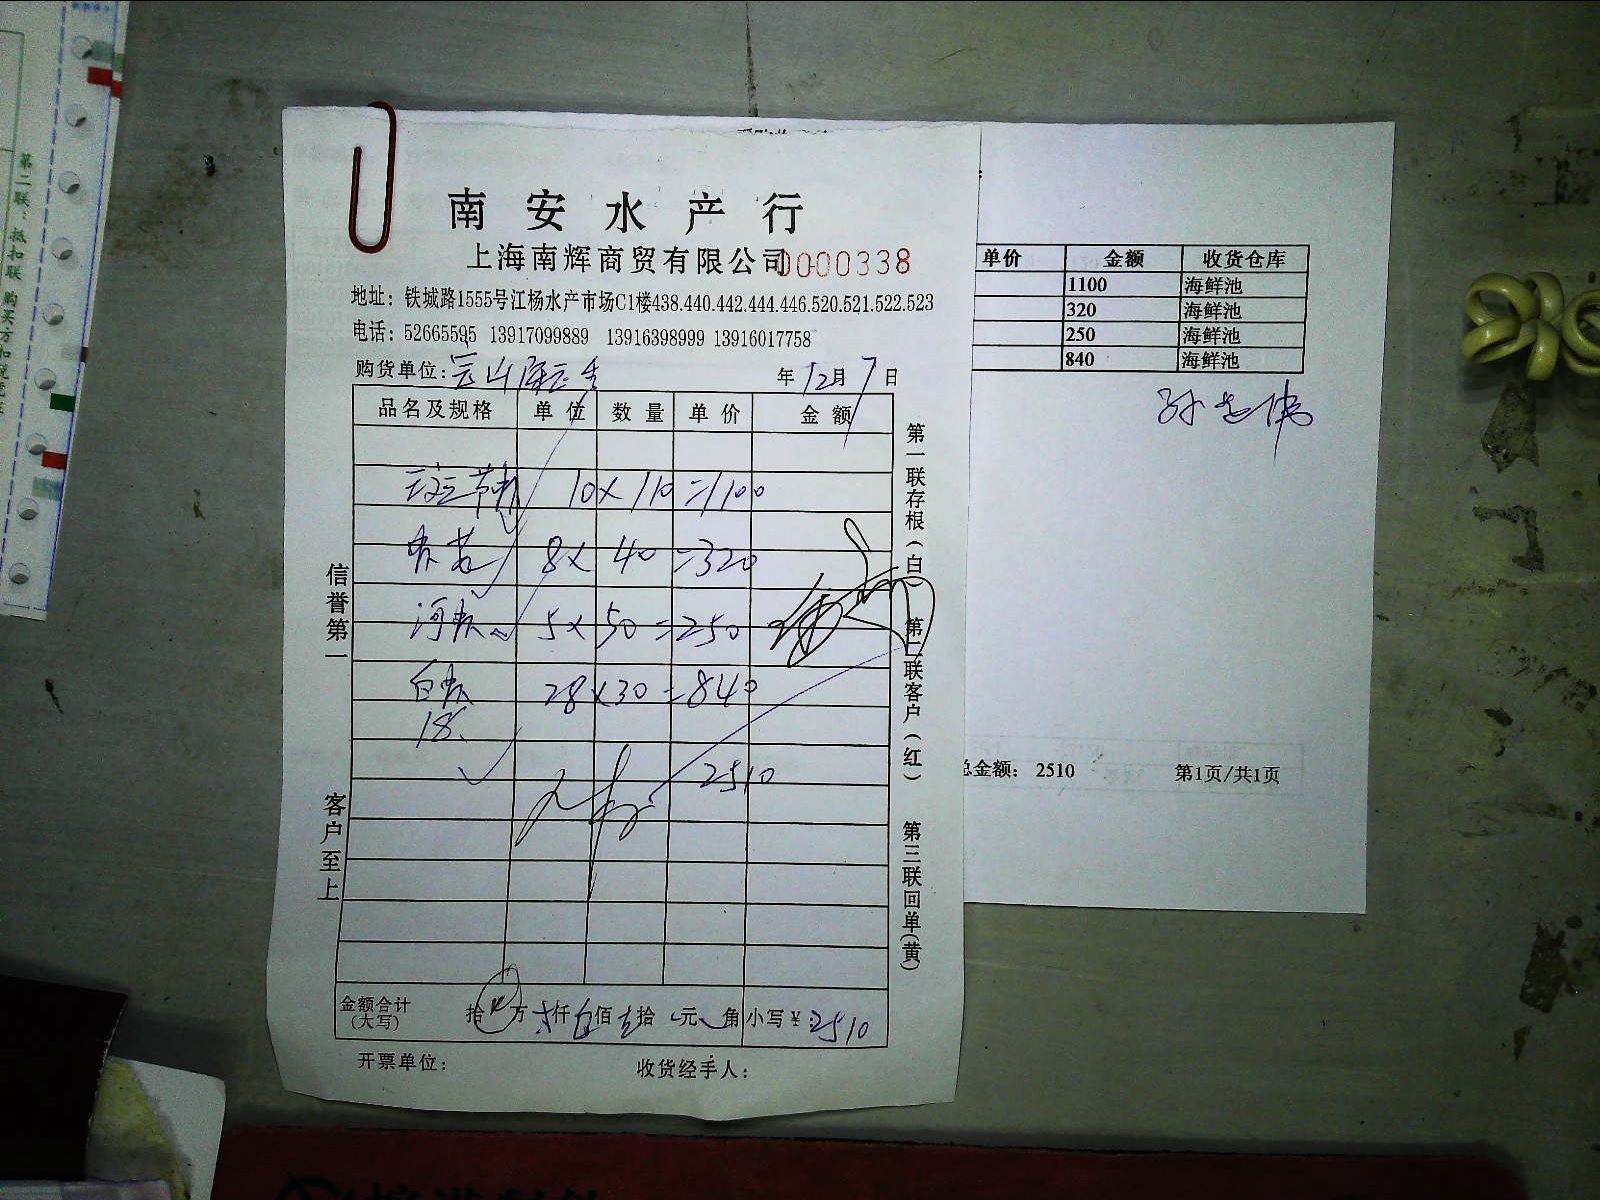 南安水产行
上海南辉商贸有限公司 0000338
地址：铁城路1555号江杨水产市场C1楼438.440.442.444.446.520.521.522.523
电话：52665595 13917099889 13916398999 13916017758
购货单位：
年12月7日
品名及规格 单位 数量 单价 金额
10×110=1100
8×40=320
河虾 5×50=250
白虾 28×30=840
18
2510
金额合计(大写) 拾 万 仟 佰 拾 元 角 小写￥：2510
开票单位： 收货经手人：
信誉第一
客户至上
第一联存根(白) 第二联客户(红) 第三联回单(黄)
单价 金额 收货仓库
1100 海鲜池
320 海鲜池
250 海鲜池
840 海鲜池
总金额： 2510 第1页/共1页
第二联：抵扣联 购买方扣税凭证